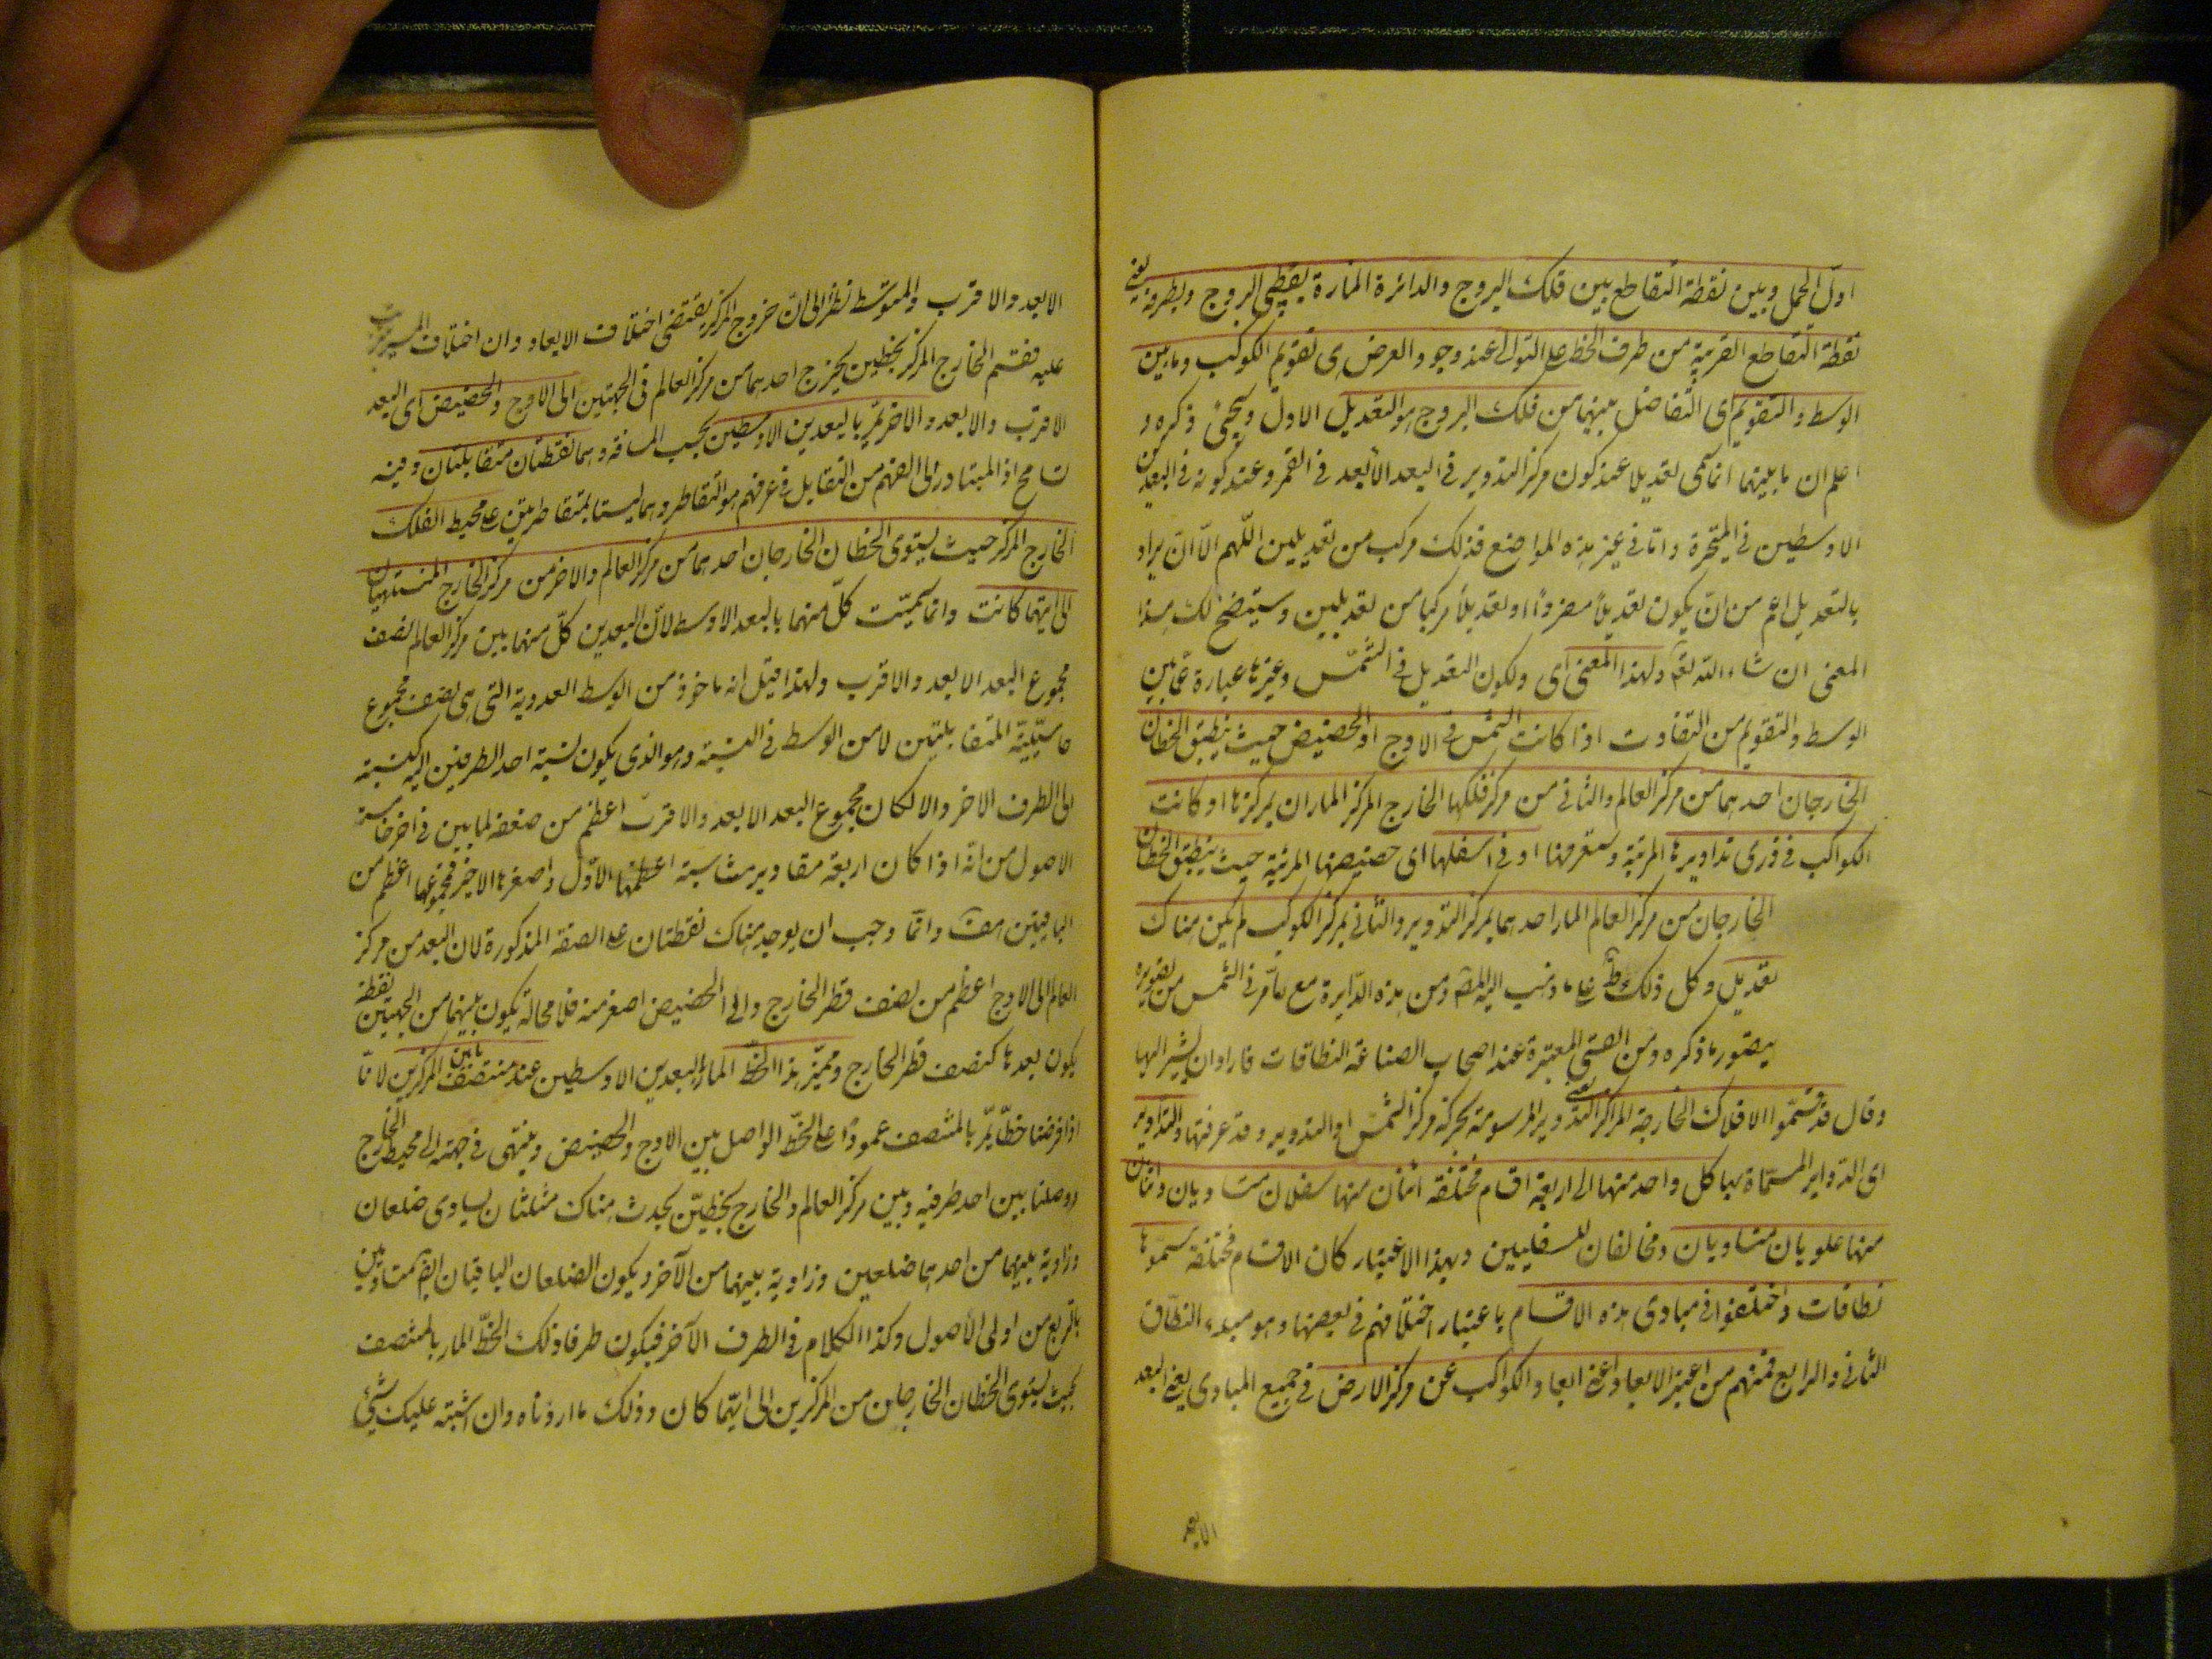 اول الحمل وبين نقطة التقاطع بين فلك البروج والدائرة المارة بقطبي البروج وبطرفه يعنى
نقطة التقاطع القريبة من طرف الخط على التوالى عند وجود العرض هى تقويم الكوكب وما بين
الوسط والتقويم اى التفاضل بينهما من فلك البروج هو التعديل الاول ويجئ ذكره و
اعلم ان ما بينهما انما سمى تعديلا عند كون مركز التدوير فى البعد الأبعد فى القمر وعند كونه فى البعدين
الاوسطين فى المتحيرة واما فى غير هذه المواضع فذلك مركب من تعديلين اللهم الا ان يراد
بالتعديل اعم من ان يكون تعديلاً مفرداً او تعديلاً مركبا من تعديلين وسيتضح لك هذا
المعنى ان شاء الله تع ولهذا المعنى اى ولكون التعديل فى الشمس وغيرها عبارة عما بين
الوسط والتقويم من التفاوت اذا كانت الشمس فى الاوج او الحضيض حيث ينطبق الخطان
الخارجان احدهما من مركز العالم والثانى من مركز فلكها الخارج المركز الماران بمركزها او كانت
الكواكب فى ذرى تداويرها المرئية وستعرفها او فى اسفلها اى حضيضها المرئية حيث ينطبق الخطان
الخارجان من مركز العالم المار احدهما بمركز التدوير والثانى بمركز الكوكب لم يكن هناك
تعديل وكل ذلك ظ على ما ذهب اليه المص ومن هذه الدايرة مع ما مر فى الشمس من تصويره
يتصور ما ذكره ومن القسى المعتبرة عند اصحاب الصناعة النطاقات فاراد ان يشير اليها
وقال قد قسموا الافلاك الخارجة المراكز يعنى التدوير المرسومة بحركة مركز الشمس او التدوير وقد عرفتها والتداوير
اى الدواير المسماة بها كل واحد منها الى اربعة اقسام مختلفة اثنان منها سفلان متساويان واثنان
منها علويان متساويان ومخالفان للسفليين وبهذا الاعتبار كان الاقسام مختلفة سموها
نطاقات واختلفوا فى مبادى هذه الاقسام باعتبار اختلافهم فى بعضها وهو مبدء النطاق
الثانى والرابع فمنهم من اعتبر الابعاد اعنى ابعاد الكواكب عن مركز الارض فى جميع المبادى يعنى البعد
الابعد
الابعد والاقرب والمتوسط نظرا الى ان خروج المركز يقتضى اختلاف الابعاد وان اختلاف المسير يترتب
عليه فقسم الخارج المركز بخطين يخرج احدهما من مركز العالم فى الجهتين الى الاوج والحضيض اى البعد
الاقرب والابعد والاخر يمر بالبعدين الاوسطين بحسب المسافة وهما نقطتان متقابلتان وفيه
تسامح اذ المتبادر الى الفهم من التقابل فى عرفهم هو التقاطر وهما ليستا بمتقاطرتين على محيط الفلك
الخارج المركز حيث يستوى الخطان الخارجان احدهما من مركز العالم والاخر من مركز الخارج المنتهيان
الى ايتهما كانت وانما سميت كل منهما بالبعد الاوسط لان البعدين كل منهما بين مركز العالم نصف
مجموع البعد الابعد والاقرب ولهذا قيل انه ماخوذ من الوسط العددية التى هى نصف مجموع
حاشيتيه المتقابلتين لا من الوسط فى النسبة وهو الذى يكون نسبة احد الطرفين اليه كنسبته
الى الطرف الاخر والا لكان مجموع البعد الابعد والاقرب اعظم من ضعفه لما بين فى اخر خامسة
الاصول من انه اذا كان اربعة مقادير متناسبة اعظمها الاول واصغرها الاخير فمجموعهما اعظم من
الباقيتين هف وانما وجب ان يوجد هناك نقطتان على الصفة المذكورة لان البعد من مركز
العالم الى الاوج اعظم من نصف قطر الخارج والى الحضيض اصغر منه فلا محالة يكون بينهما من الجهتين نقطة
يكون بعدها كنصف قطر الخارج ومميز هذا الخط المار بالبعدين الاوسطين عند منتصف ما بين المركزين لانا
اذا فرضنا خطا يمر بالمنتصف عمودًا على الخط الواصل بين الاوج والحضيض وينتهى فى جهته الى محيط الخارج
ووصلنا بين احد طرفيه وبين مركز العالم والخارج بخطين يحدث هناك مثلثان يساوى ضلعان
وزاوية بينهما من احدهما ضلعين وزاوية بينهما من الآخر ويكون الضلعان الباقيان ايضا متساويين
بالرابع من اولى الأصول وكذا الكلام فى الطرف الآخر فيكون طرفا ذلك الخط المار بالمنتصف
بحيث يستوى الخطان الخارجان من المركزين الى ايهما كان وذلك ما اردناه وان اشتبه عليك شئ